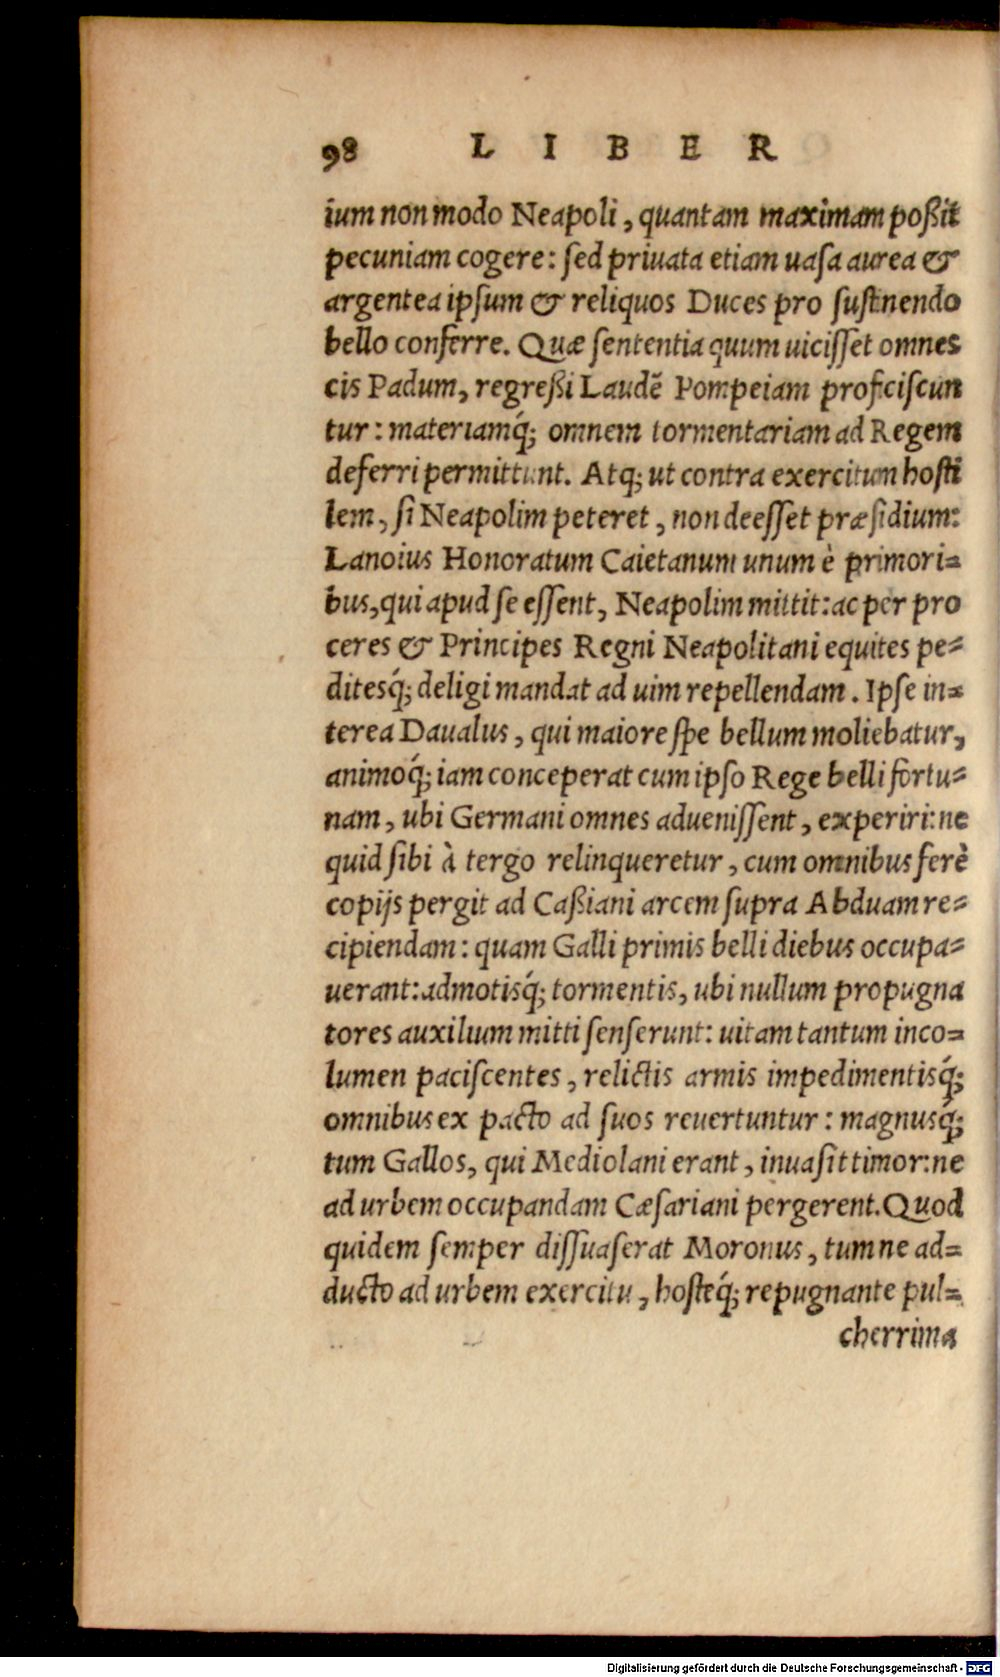 98 LIBER
ium non modo Neapoli, quantam maximam poßit
pecuniam cogere: sed priuata etiam uasa aurea &
argentea ipsum & reliquos Duces pro sustinendo
bello conferre. Quæ sententia quum uicisset omnes
cis Padum, regreßi Laudē Pompeiam proficiscun
tur: materiamq́; omnem tormentariam ad Regem
deferri permittunt. Atq; ut contra exercitum hosti
lem, si Neapolim peteret, non deesset præsidium:
Lanoius Honoratum Caietanum unum è primori=
bus, qui apud se essent, Neapolim mittit: ac per pro
ceres & Principes Regni Neapolitani equites pe=
ditesq́; deligi mandat ad uim repellendam. Ipse in=
terea Daualus, qui maiore spe bellum moliebatur,
animoq́; iam conceperat cum ipso Rege belli fortu=
nam, ubi Germani omnes aduenissent, experiri: ne
quid sibi à tergo relinqueretur, cum omnibus ferè
copijs pergit ad Caßiani arcem supra Abduam re=
cipiendam: quam Galli primis belli diebus occupa=
uerant: admotisq́; tormentis, ubi nullum propugna
tores auxilium mitti senserunt: uitam tantum inco=
lumen paciscentes, relictis armis impedimentisq́;
omnibus ex pacto ad suos reuertuntur: magnusq́;
tum Gallos, qui Mediolani erant, inuasit timor: ne
ad urbem occupandam Cæsariani pergerent. Quod
quidem semper dissuaserat Moronus, tum ne ad=
ducto ad urbem exercitu, hosteq́; repugnante pul=
cherrima
Digitalisierung gefördert durch die Deutsche Forschungsgemeinschaft - DFG